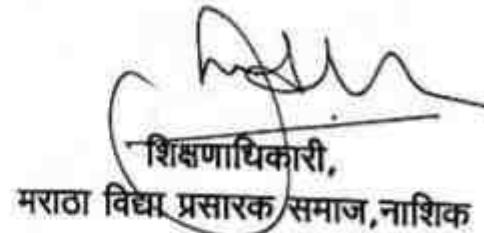 शिक्षणाधिकारी,
मराठा विद्या प्रसारक समाज,नाशिक